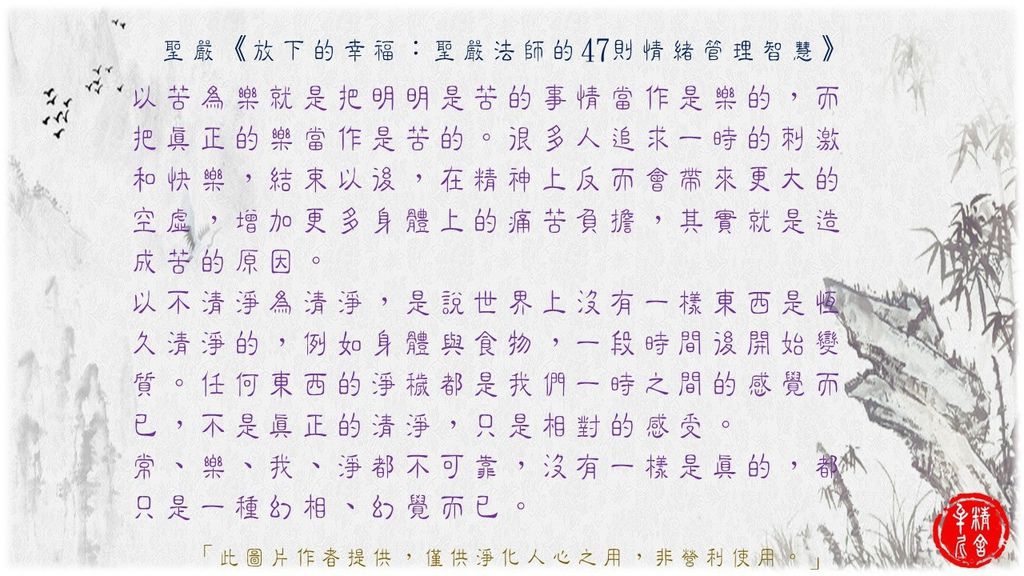 聖嚴《放下的幸福：聖嚴法師的47則情緒管理智慧》
以苦為樂就是把明明是苦的事情當作是樂的，而
把真正的樂當作是苦的。很多人追求一時的刺激
和快樂，結束以後，在精神上反而會帶來更大的
空虛，增加更多身體上的痛苦負擔，其實就是造
成苦的原因。
以不清淨為清淨，是說世界上沒有一樣東西是恆
久清淨的，例如身體與食物，一段時間後開始變
質。任何東西的淨穢都是我們一時之間的感覺而
已，不是真正的清淨，只是相對的感受。
常、樂、我、淨都不可靠，沒有一樣是真的，都
只是一種幻相、幻覺而已。
「此圖片作者提供，僅供淨化人心之用，非營利使用。」
精舍